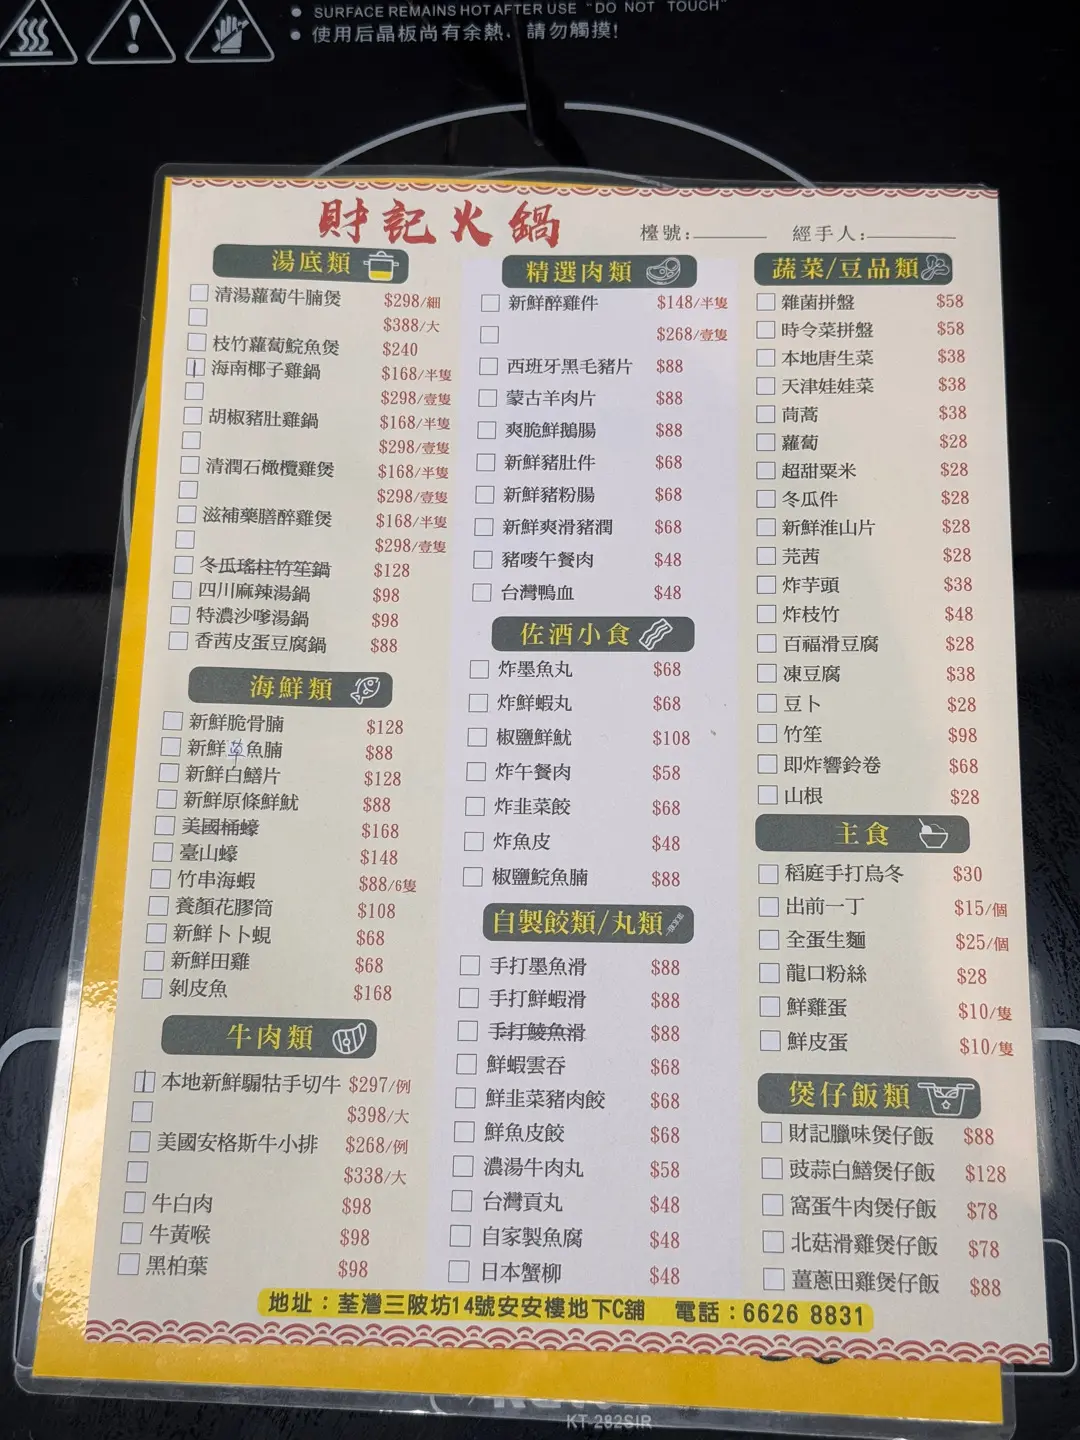 SURFACE REMAINS HOT AFTER USE "DO NOT TOUCH"
使用后晶板尚有余熱，請勿觸摸！
財記火鍋
檯號：
經手人：
湯底類
清湯蘿蔔牛腩煲 $298/細
$388/大
枝竹蘿蔔鯇魚煲 $240
海南椰子雞鍋 $168/半隻
$298/壹隻
胡椒豬肚雞鍋 $168/半隻
$298/壹隻
清潤石橄欖雞煲 $168/半隻
$298/壹隻
滋補藥膳醉雞煲 $168/半隻
$298/壹隻
冬瓜瑤柱竹笙鍋 $128
四川麻辣湯鍋 $98
特濃沙嗲湯鍋 $98
香茜皮蛋豆腐鍋 $88
海鮮類
新鮮脆骨腩 $128
新鮮草魚腩 $88
新鮮白鱔片 $128
新鮮原條鮮魷 $88
美國桶蠔 $168
臺山蠔 $148
竹串海蝦 $88/6隻
養顏花膠筒 $108
新鮮卜卜蜆 $68
新鮮田雞 $68
剝皮魚 $168
牛肉類
本地新鮮騸牯手切牛 $297/例
$398/大
美國安格斯牛小排 $268/例
$338/大
牛白肉 $98
牛黃喉 $98
黑柏葉 $98
精選肉類
新鮮醉雞件 $148/半隻
$268/壹隻
西班牙黑毛豬片 $88
蒙古羊肉片 $88
爽脆鮮鵝腸 $88
新鮮豬肚件 $68
新鮮豬粉腸 $68
新鮮爽滑豬潤 $68
豬嘜午餐肉 $48
台灣鴨血 $48
佐酒小食
炸墨魚丸 $68
炸鮮蝦丸 $68
椒鹽鮮魷 $108
炸午餐肉 $58
炸韭菜餃 $68
炸魚皮 $48
椒鹽鯇魚腩 $88
自製餃類/丸類
手打墨魚滑 $88
手打鮮蝦滑 $88
手打鯪魚滑 $88
鮮蝦雲吞 $68
鮮韭菜豬肉餃 $68
鮮魚皮餃 $68
濃湯牛肉丸 $58
台灣貢丸 $48
自家製魚腐 $48
日本蟹柳 $48
蔬菜/豆品類
雜菌拼盤 $58
時令菜拼盤 $58
本地唐生菜 $38
天津娃娃菜 $38
茼蒿 $38
蘿蔔 $28
超甜粟米 $28
冬瓜件 $28
新鮮淮山片 $28
芫茜 $28
炸芋頭 $38
炸枝竹 $48
百福滑豆腐 $28
凍豆腐 $38
豆卜 $28
竹笙 $98
即炸響鈴卷 $68
山根 $28
主食
稻庭手打烏冬 $30
出前一丁 $15/個
全蛋生麵 $25/個
龍口粉絲 $28
鮮雞蛋 $10/隻
鮮皮蛋 $10/隻
煲仔飯類
財記臘味煲仔飯 $88
豉蒜白鱔煲仔飯 $128
窩蛋牛肉煲仔飯 $78
北菇滑雞煲仔飯 $78
薑蔥田雞煲仔飯 $88
地址：荃灣三陂坊14號安安樓地下C舖 電話：6626 8831
KT-282SIR